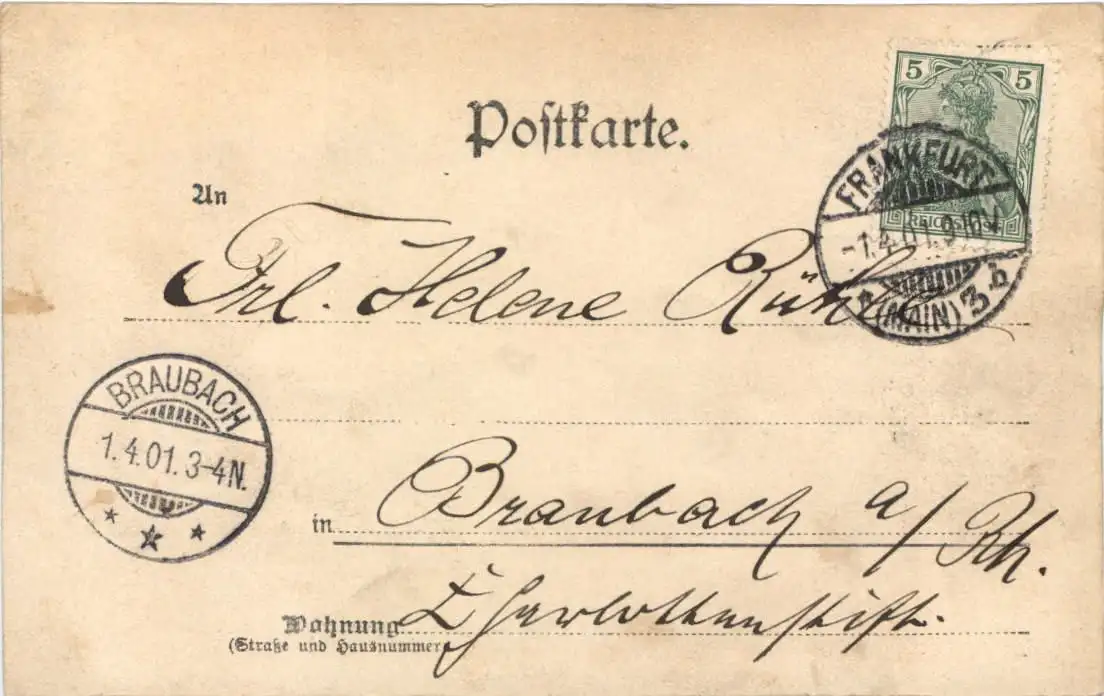 5 5
Postkarte.
FRANKFURT
REICHSPOST
-1.4.01.9-10V
(MAIN) 3 b
An
Frl. Helene
BRAUBACH
1.4.01.3-4N.
in Braubach a/Rh.
Wohnung
(Straße und Hausnummer)